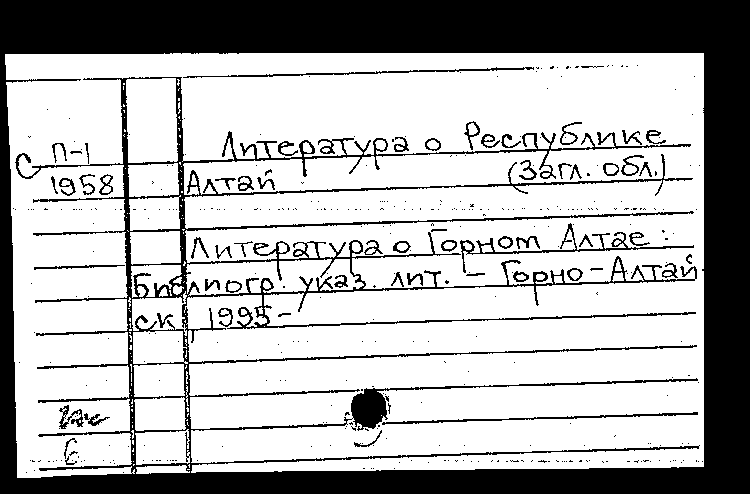 С П-1 Литература о Республике
1958 Алтай (Загл. обл.)
Литература о Горном Алтае :
Библиогр. указ. лит. – Горно-Алтай-
ск, 1995-
6